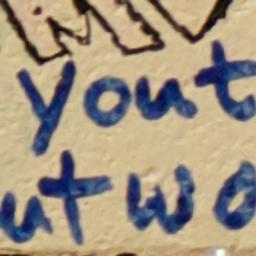 yout
ut wo